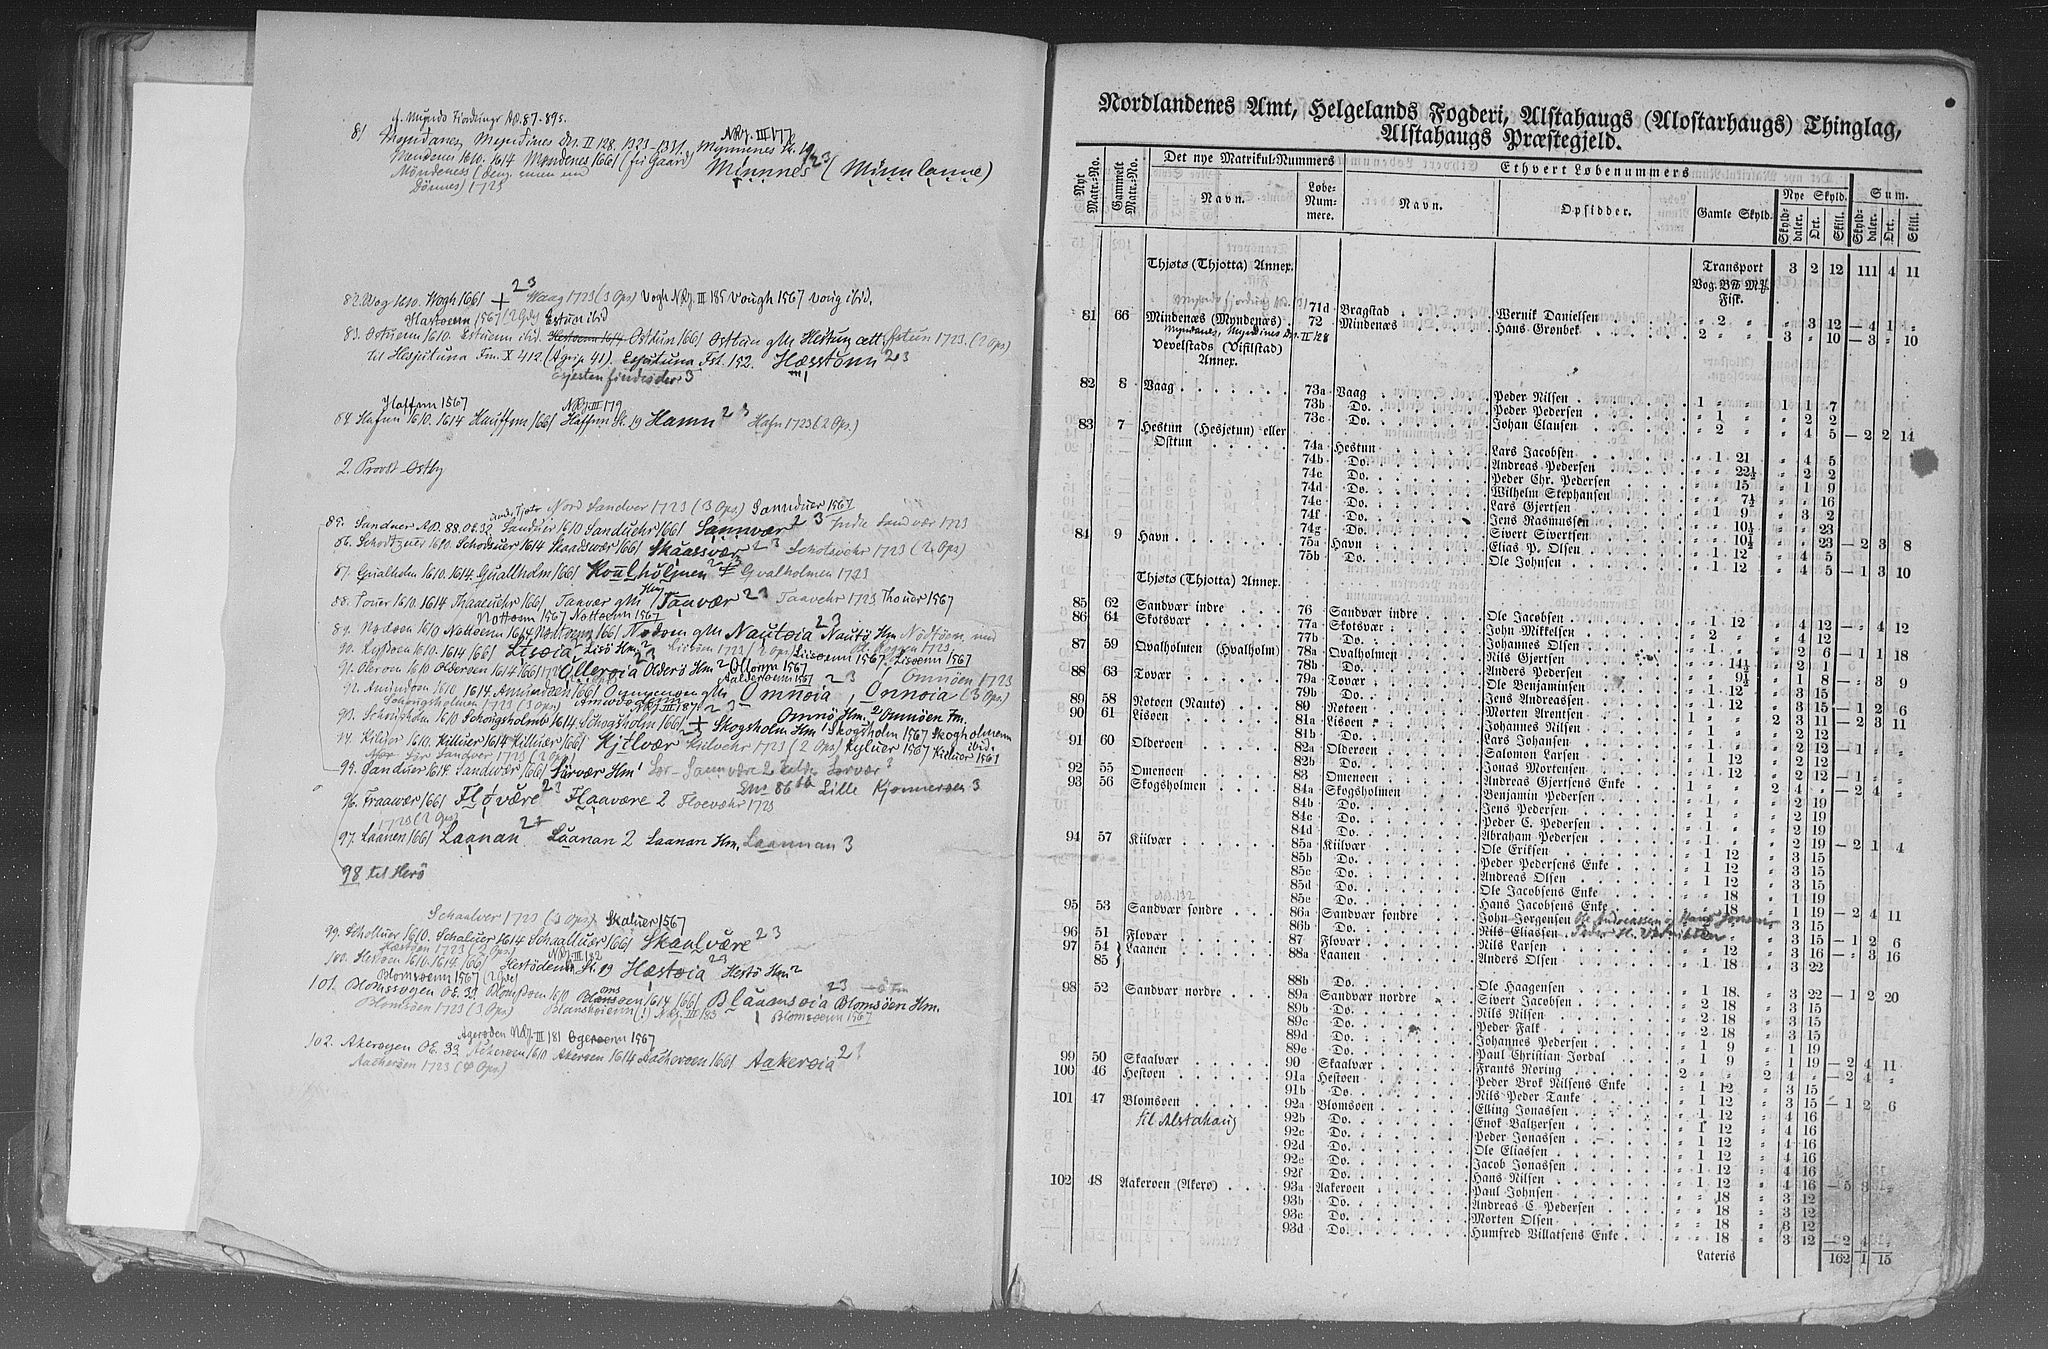 cf. Mynds Fjordungr AB. 87. 89s.
81 Myndanes, Myndines Dn. II 128. 1323-1331. Mynnenes St. 19 NRJ. III 177
Mendenes 1610. 1614 Myndenes 1661 (fir Gaard) Minnnes 23 (Minnlanne)
Möndeness (deng. enen und
Dönnes) 1723
82. Wog 1610. Wogh 1661 + 23 Waag 1723 (3 Ops) Vogh NRJ. III 185 Vough 1567 Voug ibid.
Hastoenn 1567 (2 Gde) Estun ibid
83. Ostuenn 1610. Estuenn ibid. Hestoenn 1614 Ostdun 1661 Osttun gM Hestun ell Østun 1723. (2 Ops)
til Hesjutuna Fm. X 412 (Agrip 41). Esjutuna Fst. 152. Hæsstonn 23
Esjesten findes der 3
Haffnn 1567 NRJ. III 179
84 Hafnn 1610. 1614 Hauffnn 1661 Haffnn St. 19 Hamn 23 Hafn 1723 (2 Ops.)
2. Provst Østby
Nord Sandver 1723 (3 Ops) Sannduer 1567
85. Sanduer AB. 88. OE. 32 Sanduer 1610 Sanduehr 1661 Sannvær 23 Indre Sandvær 1723
86. Schodtzuer 1610. Schodsuer 1614 Skaadswær 1661 Skaassvær 23 Schotsvehr 1723 (2 Ops)
87. Gualholm 1610. 1614. Quallholm 1661 Kvalholjmen 23 Qvalholmen 1723
88. Touer 1610. 1614 Thaaeuehr 1661 Taavær gM Taavær 23 Taavehr 1723 Thouer 1567
Nottoenn 1567 Nottoenn 1567
89. Nodoen 1610 Nottoenn 1614 Nøttoenn 1661 Nodoen gM Nautøia 23 Nautö Hm Nödtöen
90. Lysoen 1610. 1614 1661 Lisøia Lisö Hm 2 Lisöen 1723 (2 Ops) Lisoenn 1567. Lisoenn 1567
91. Oleroen 1610 Olderoen 1614 1661 Ollerøia Olderö Hm 2 Olloenn 1567
Aalderoenn 1567 Omnöen 1723
92. Amundoen 1610. 1614. Amundoen 1661 Ommenoen gM Omnøia, Onnøia (3 Ops)
Schougsholmen 1723 (3 Ops) NRJ. III 187 23 Omnö Hm. 2 Omnöen Fm.
93. Schougholm 1610 Schougsholmb 1614. Schogsholm 1661 + Skogsholm Hm Skogsholm 1567 Skogholmenn ibid.
94. Kiluer 1610. Killuer 1614 Killuær 1661 Kjtlvær 23 Kilvehr 1723 (2 Ops) Kyluer 1567 Kieluer 1567
Sör Sandver 1723 (2 Ops)
95. Sanduer 1614 Sandwær 1661 Sørvær Hm Sør-Sannvære 2 Sørvær 3
Lille Kjønnersøen 3
96. Fraawær 1661 Fløvære 23 Flaavære 2 Floevæhr 1723
1723 (2 Ops)
97. Laanen 1661 Laanan 2 Låanan 2 Laanan Hm. Laannan 3
98 til Herö
Schaalver 1723 (3 Ops) Skaluer 1567
99. Scholluer 1610. Schaluer 1614 Schaalluær 1661 Skaalvære 23
Hestöen 1723 (2 Ops) NRJ. III 182
100. Hestoen 1610. 1614. 1661 Hestödenn St. 19 Hæstøia 23 Hestö Hm 2
Blomsoenn 1567 (2 Gde) 23 -ö Fm
101. Blomssoyen OE. 33. Blomssoen 1610 Blansoen 1614 1661 Blåansøia Blomsöen Hm.
Blomsöen 1723 (3 Ops) Blanskoienn (!) NRJ. III 183 Blomsoenn 1567
Ageroden NRJ. III 181 Ogeroenn 1567
102. Akeroyen OE. 33 Ackeroen 1610 Akeroen 1614 Aachoroen 1661 Aakerøia 2?
Aacheröen 1723 (4 Ops)
Nordlandenes Amt, Helgelands Fogderi, Alstahaugs (Alostarhaugs) Thinglag,
Alstahaugs Præstegjeld.
Nyt Matr.-No. Gammelt Matr.-No. Det nye Matrikul-Nummers Ethvert Løbenummers
Navn. Løbe-Nummere. Navn. Opsidder. Gamle Skyld. Nye Skyld. Sum.
Skylddaler. Ort. Skill. Skylddaler. Ort. Skill.
Thjøtø (Thjotta) Annex. Transport 3 2 12 111 4 11
Vog. B℔ M℔
Fisk.
71d Bragstad Wernik Danielsen " 2 " " 3 12 — 4 1 "
81 66 Mindenæs (Myndenæs) 72 Mindenæs Hans Gronbek 2 " " 3 " 10 — 3 " 10
Myndanes, Myndines Dn. II 128
Vevelstads (Vifilstad)
Annex.
82 8 Vaag 73a Vaag Peder Nilsen 1 " " 1 1 7
73b Do. Peder Pedersen " 1 " " 2 2
73c Do. Johan Clausen " 2 " " 4 5 — 2 2 14
83 7 Hestun (Hesjetun) eller
Østtun 74a Hestun Lars Jacobsen " 1 21 " 4 5
74b Do. Andreas Pedersen " " 22½ " 2 2
74c Do. Peder Chr. Pedersen " " 15 " 1 9
74d Do. Wilhelm Stephansen " " 7½ " " 16
74e Do. Lars Gjertsen " 1 9 " 3 2
74f Do. Jens Rasmussen " " 10½ " " 23
74g Do. Sivert Sivertsen " " 10½ " " 23 — 2 3 8
84 9 Havn 75a Havn Elias P. Olsen " 1 12 " 4 5
75b Do. Ole Johnsen " 1 12 " 4 5 — 1 3 10
Thjøtø (Thjotta) Annex.
85 62 Sandvær indre 76 Sandvær indre Ole Jacobsen " 1 12 " 4 12 — " 4 12
86 64 Skotsvær 77a Skotsvær John Mikkelsen " 2 " " 4 12
77b Do. Johannes Olsen " 1 " " 2 6 — 1 1 18
87 59 Qvalholmen (Hvalholm) 78a Qvalholmen Nils Gjertsen " " 14½ " 2 1
78b Do. Anders Pedersen " " 9½ " 1 8 — " 3 9
88 63 Tovær 79a Tovær Ole Benjaminsen " 1 12 " 3 15
79b Do. Jens Andreassen " 1 12 " 3 15 — 1 2 6
89 58 Notoen (Nauto) 80 Notoen Morten Arentsen 1 " " 2 3 11 — 2 3 11
90 61 Lisoen 81a Lisoen Johannes Nilsen " 1 " " 2 12
81b Do. Lars Johansen " 1 " " 2 12 — 1 " "
91 60 Olderoen 82a Olderoen Salomon Larsen " 1 12 " 2 12
82b Do. Jonas Mortensen " 1 12 " 2 12 — 1 " "
92 55 Omenoen 83 Omenoen Andreas Gjertsens Enke 1 " " 2 4 " — 2 4 "
93 56 Skogsholmen 84a Skogsholmen Benjamin Pedersen " 1 " " 2 19
84b Do. Jens Pedersen " 1 " " 2 19
84c Do. Peder C. Pedersen " 1 " " 2 19
84d Do. Abraham Pedersen " 1 " " 2 19 — 2 1 4
94 57 Kiilvær 85a Kiilvær Ole Eriksen " 1 12 " 3 15
85b Do. Peder Pedersens Enke " 1 12 " 3 15
85c Do. Andreas Olsen " 1 12 " 3 15
85d Do. Ole Jacobsens Enke " " 18 " 1 19
85e Do. Hans Jacobsens Enke " " 18 " 1 19 — 2 4 11
95 53 Sandvær søndre 86a Sandvær søndre John Jørgensen Ole Andreassen og Hans Jonsen
86b Do. Nils Eliassen Peder H. " 3 15 — 1 2 6
96 51 Flovær 87 Flovær Nils Larsen " 1 12 " 3 16 — " 3 16
97 54 85 } Laanen 88a Laanen Anders Olsen " 1 18 " 3 22
88b Do. Ole Haagensen " 1 18 " 3 22 — 1 2 20
98 52 Sandvær nordre 89a Sandvær nordre Sivert Jacobsen " 2 18 " 3 15
89b Do. Nils Nilsen " 2 18 " 3 15
89c Do. Peder Falk " 2 " " 3 15
89d Do. Johannes Pedersen " 1 9 " 1 19
89e Do. Paul Christian Jordal " 1 9 " 1 19 — 2 4 11
99 50 Skaalvær 90 Skaalvær Frants Noring 2 " " 2 4 " — 2 4 "
100 46 Hestoen 91a Hestoen Peder Brok Nilsens Enke " 1 12 " 3 15
91b Do. Nils Peder Tanke " 1 12 " 3 15 — 1 2 6
101 47 Blomsoen 92a Blomsoen Elling Jonassen " 1 12 " 4 16
til Alstahaug
92b Do. Enok Baltzersen " 1 12 " 4 16
92c Do. Peder Jonassen " 1 12 " 4 16
92d Do. Ole Eliassen " 1 12 " 4 16
92e Do. Jacob Jonassen " 1 12 " 4 16
92f Do. Hans Nilsen " 1 12 " 4 16 — 5 3 "
102 48 Aakeroen (Akero) 93a Aakeroen Paul Johnsen " " 18 " 3 12
93b Do. Andreas C. Pedersen " " 18 " 3 12
93c Do. Morten Olsen " " 18 " 3 12
93d Do. Humfred Villatsens Enke " " 18 " 3 12 — 2 4 "
Lateris 162 1 15